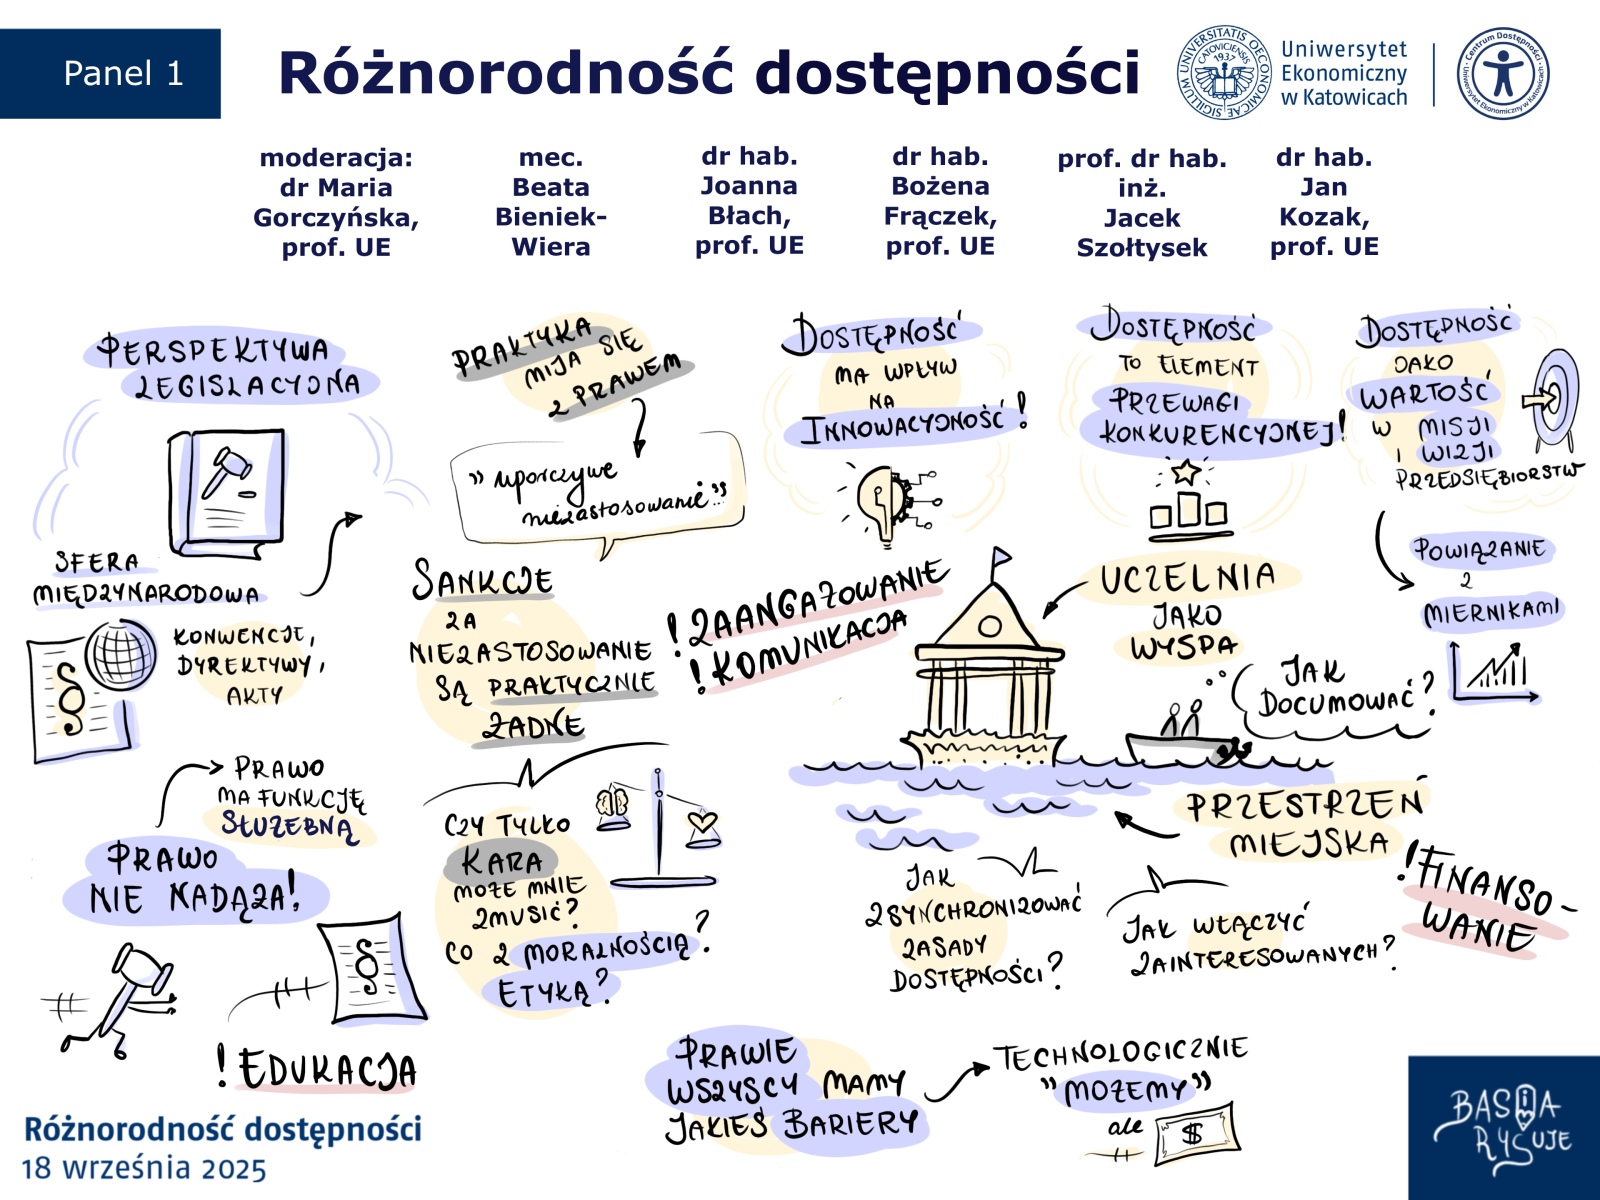 Panel 1
Różnorodność dostępności
Uniwersytet
Ekonomiczny
w Katowicach
moderacja:
dr Maria
Gorczyńska,
prof. UE
mec.
Beata
Bieniek-
Wiera
dr hab.
Joanna
Błach,
prof. UE
dr hab.
Bożena
Frączek,
prof. UE
prof. dr hab.
inż.
Jacek
Szołtysek
dr hab.
Jan
Kozak,
prof. UE
PERSPEKTYWA
LEGISLACYJNA
SFERA
MIĘDZYNARODOWA
KONWENCJE,
DYREKTYWY,
AKTY
§
PRAWO
MA FUNKCJĘ
SŁUŻEBNĄ
PRAWO
NIE NADĄŻA!
§
! EDUKACJA
PRAKTYKA
MIJA SIĘ
Z PRAWEM
"uporczywe
niezastosowanie"
SANKCJE
ZA
NIEZASTOSOWANIE
SĄ PRAKTYCZNIE
ŻADNE
CZY TYLKO
KARA
MOŻE MNIE
ZMUSIĆ?
CO Z MORALNOŚCIĄ?
ETYKĄ?
! ZAANGAŻOWANIE
! KOMUNIKACJA
DOSTĘPNOŚĆ
MA WPŁYW
NA
INNOWACYJNOŚĆ!
DOSTĘPNOŚĆ
TO ELEMENT
PRZEWAGI
KONKURENCYJNEJ!
DOSTĘPNOŚĆ
JAKO
WARTOŚĆ
W MISJI
I WIZJI
PRZEDSIĘBIORSTW
POWIĄZANIE
Z
MIERNIKAMI
UCZELNIA
JAKO
WYSPA
JAK
DOCUMOWAĆ?
PRZESTRZEŃ
MIEJSKA
JAK
ZSYNCHRONIZOWAĆ
ZASADY
DOSTĘPNOŚCI?
JAK WŁĄCZYĆ
ZAINTERESOWANYCH?
! FINANSO-
WANIE
PRAWIE
WSZYSCY MAMY
JAKIEŚ BARIERY
TECHNOLOGICZNIE
"MOŻEMY"
ale
$
Różnorodność dostępności
18 września 2025
BASIA
RYSUJE